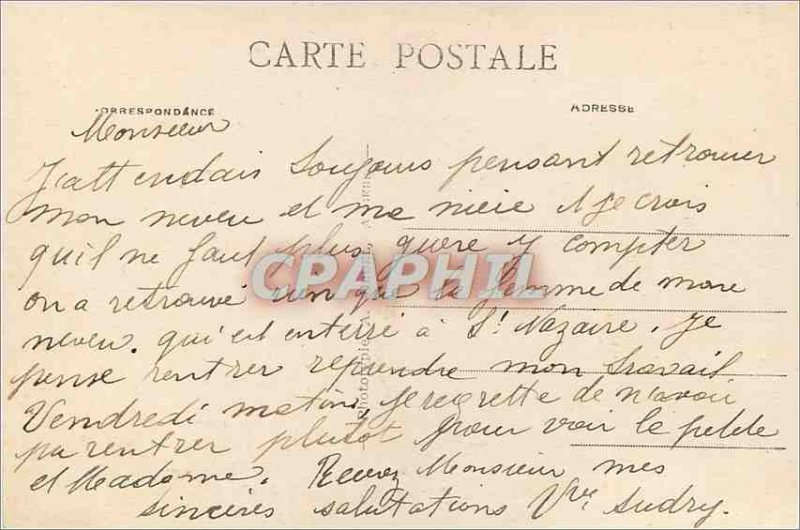 CARTE POSTALE
CORRESPONDANCE
ADRESSE
Monsieur
J'attendais toujours pensant retrouver
mon neveu et ma nièce et je crois
qu'il ne faut plus guère y compter
on a retrouvé non que la femme de mon
neveu. qui est enterré à St Nazaire. Je
pense rentrer reprendre mon travail
Vendredi matin, je regrette de n'avoir
pu rentrer plutôt pour voir le petite
et Madame. Recevez Monsieur mes
sincères salutations Vve Sudry.
CPAPHIL